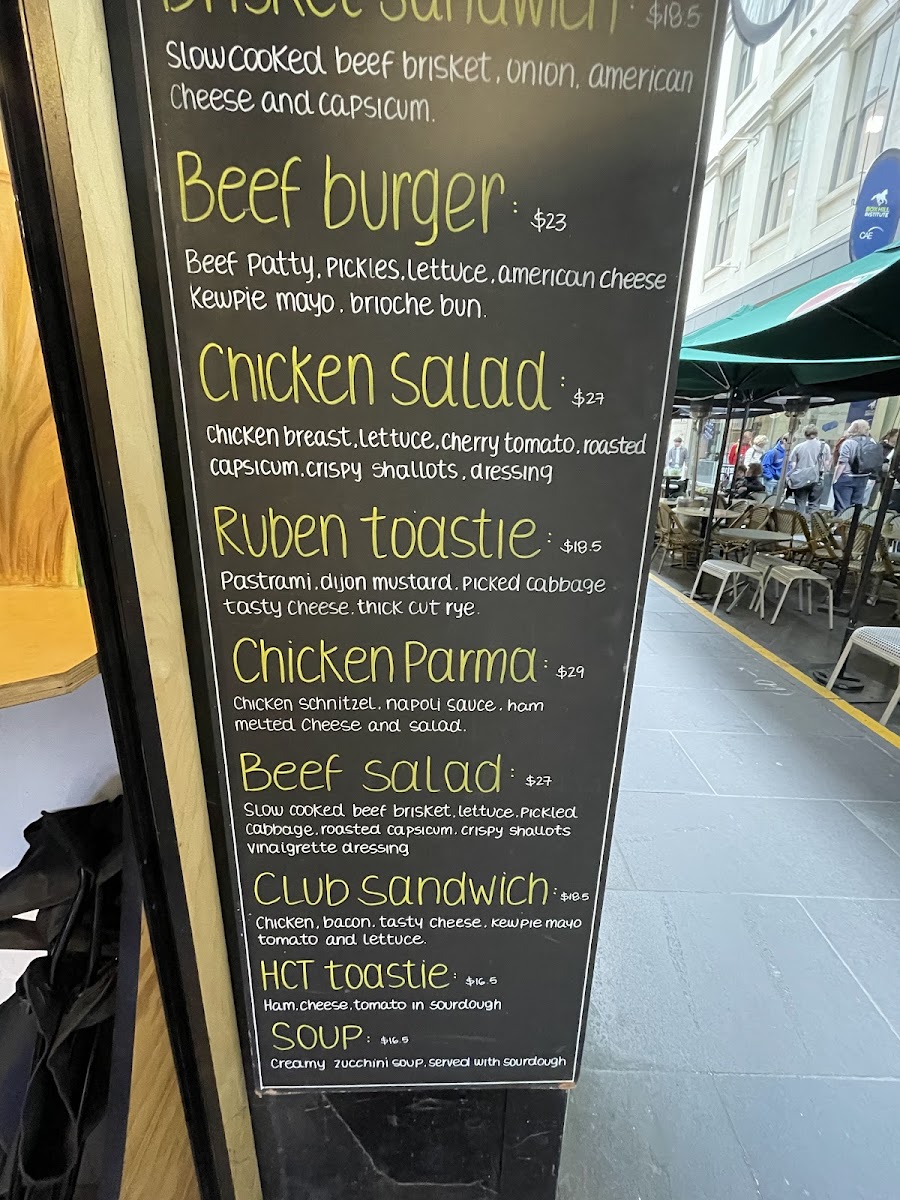 Brisket sandwich: $18.5
Slow cooked beef brisket, onion, american
cheese and capsicum.
Beef burger: $23
Beef patty, pickles, lettuce, american cheese
kewpie mayo, brioche bun.
Chicken salad: $27
Chicken breast, lettuce, cherry tomato, roasted
capsicum, crispy shallots, dressing
Ruben toastie: $18.5
Pastrami, dijon mustard, picked cabbage
tasty cheese, thick cut rye.
Chicken Parma: $29
Chicken schnitzel, napoli sauce, ham
melted cheese and salad.
Beef salad: $27
Slow cooked beef brisket, lettuce, pickled
cabbage, roasted capsicum, crispy shallots
vinaigrette dressing
Club sandwich: $18.5
Chicken, bacon, tasty cheese, kewpie mayo
tomato and lettuce.
HCT toastie: $16.5
Ham, cheese, tomato in sourdough
SOUP: $16.5
Creamy zucchini soup, served with sourdough
BOX HILL
INSTITUTE
CAE